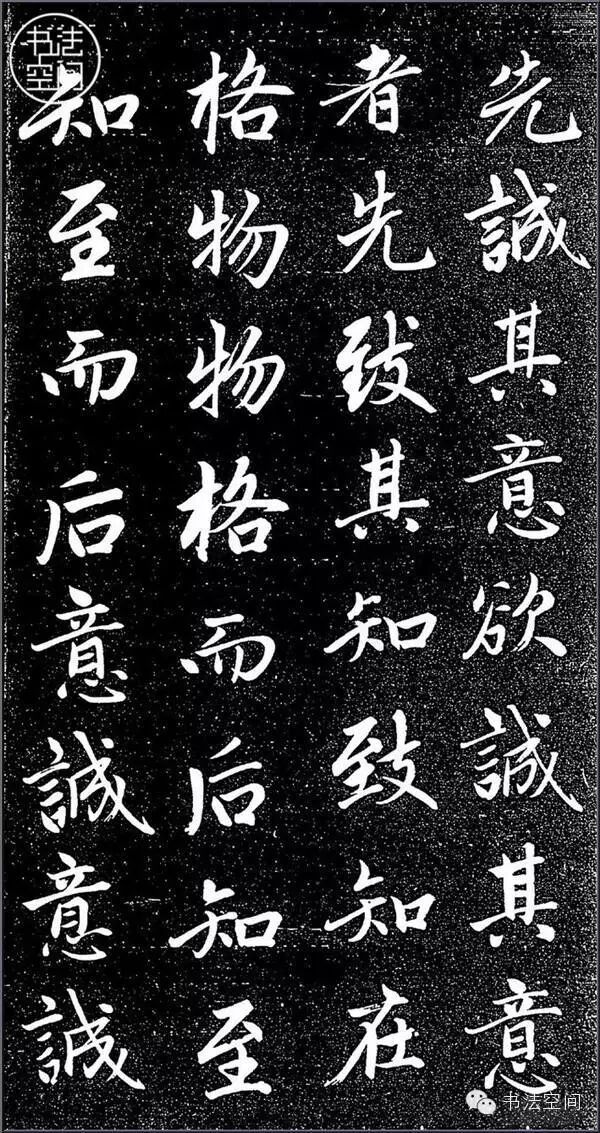 先誠其意欲誠其意
者先致其知致知在
格物物格而后知至
知至而后意誠意誠
书法空间
书法空间